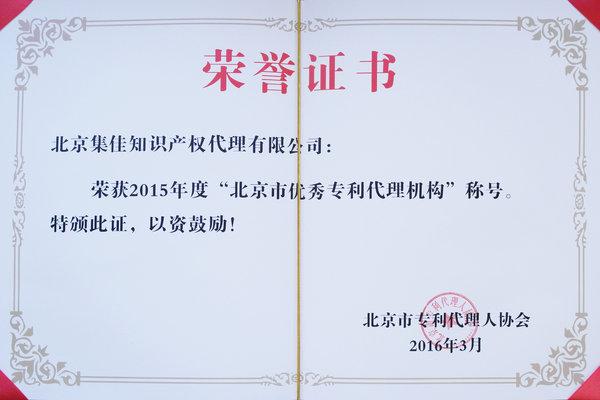 荣誉证书
北京集佳知识产权代理有限公司：
荣获2015年度“北京市优秀专利代理机构”称号。
特颁此证，以资鼓励！
北京市专利代理人协会
2016年3月